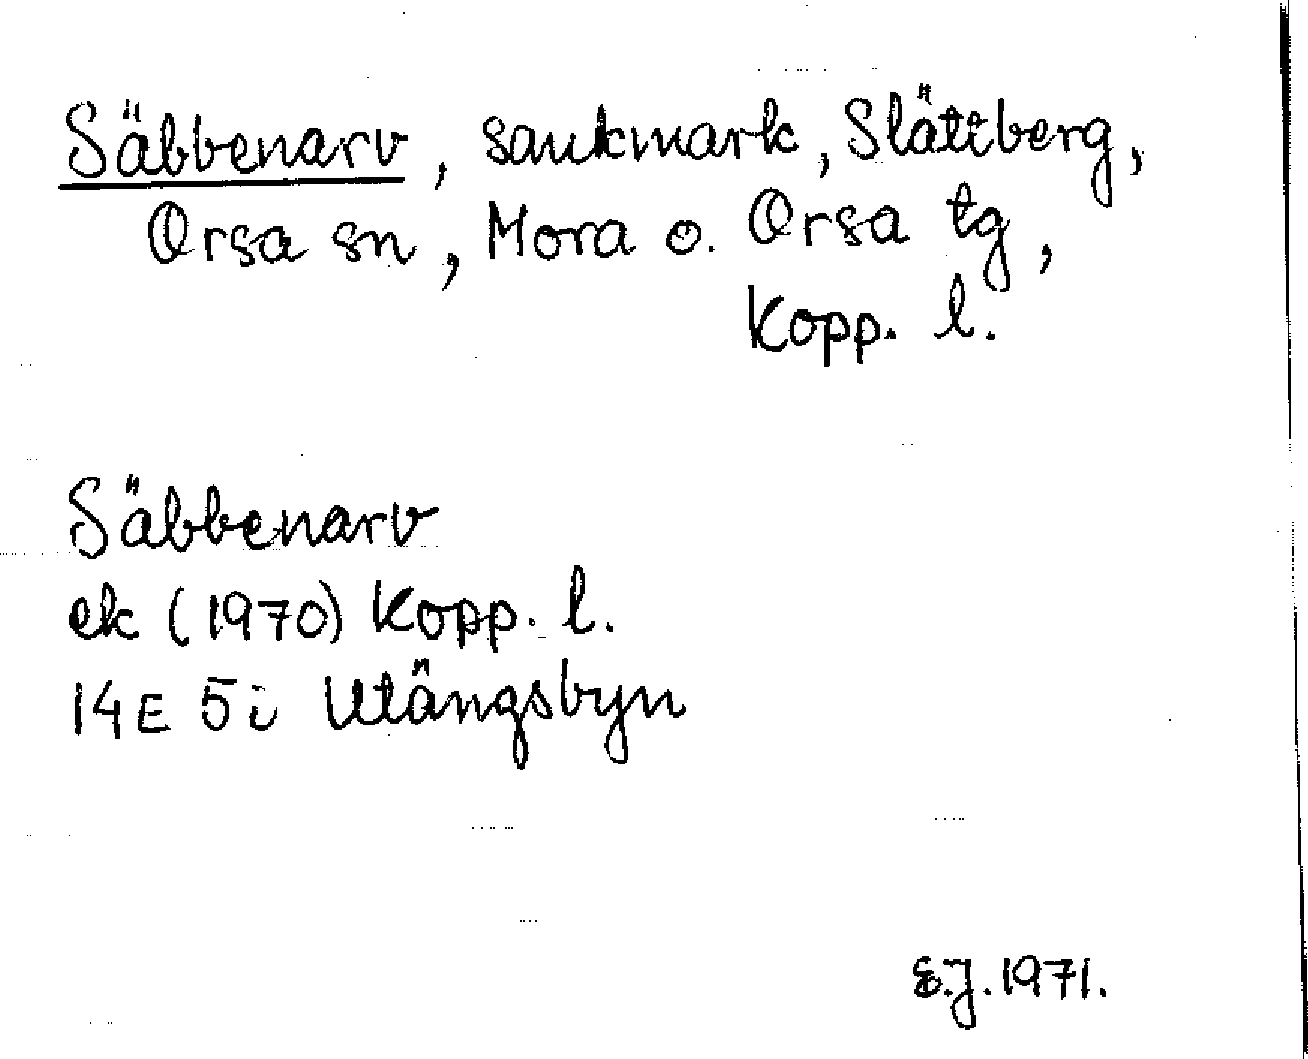 Säbbenarv, sankmark, Slättberg,
Orsa sn, Mora o. Orsa tg,
Kopp. l.
Säbbenarv
ek (1970) Kopp. l.
14E 5i Utängsbyn
E.J. 1971.